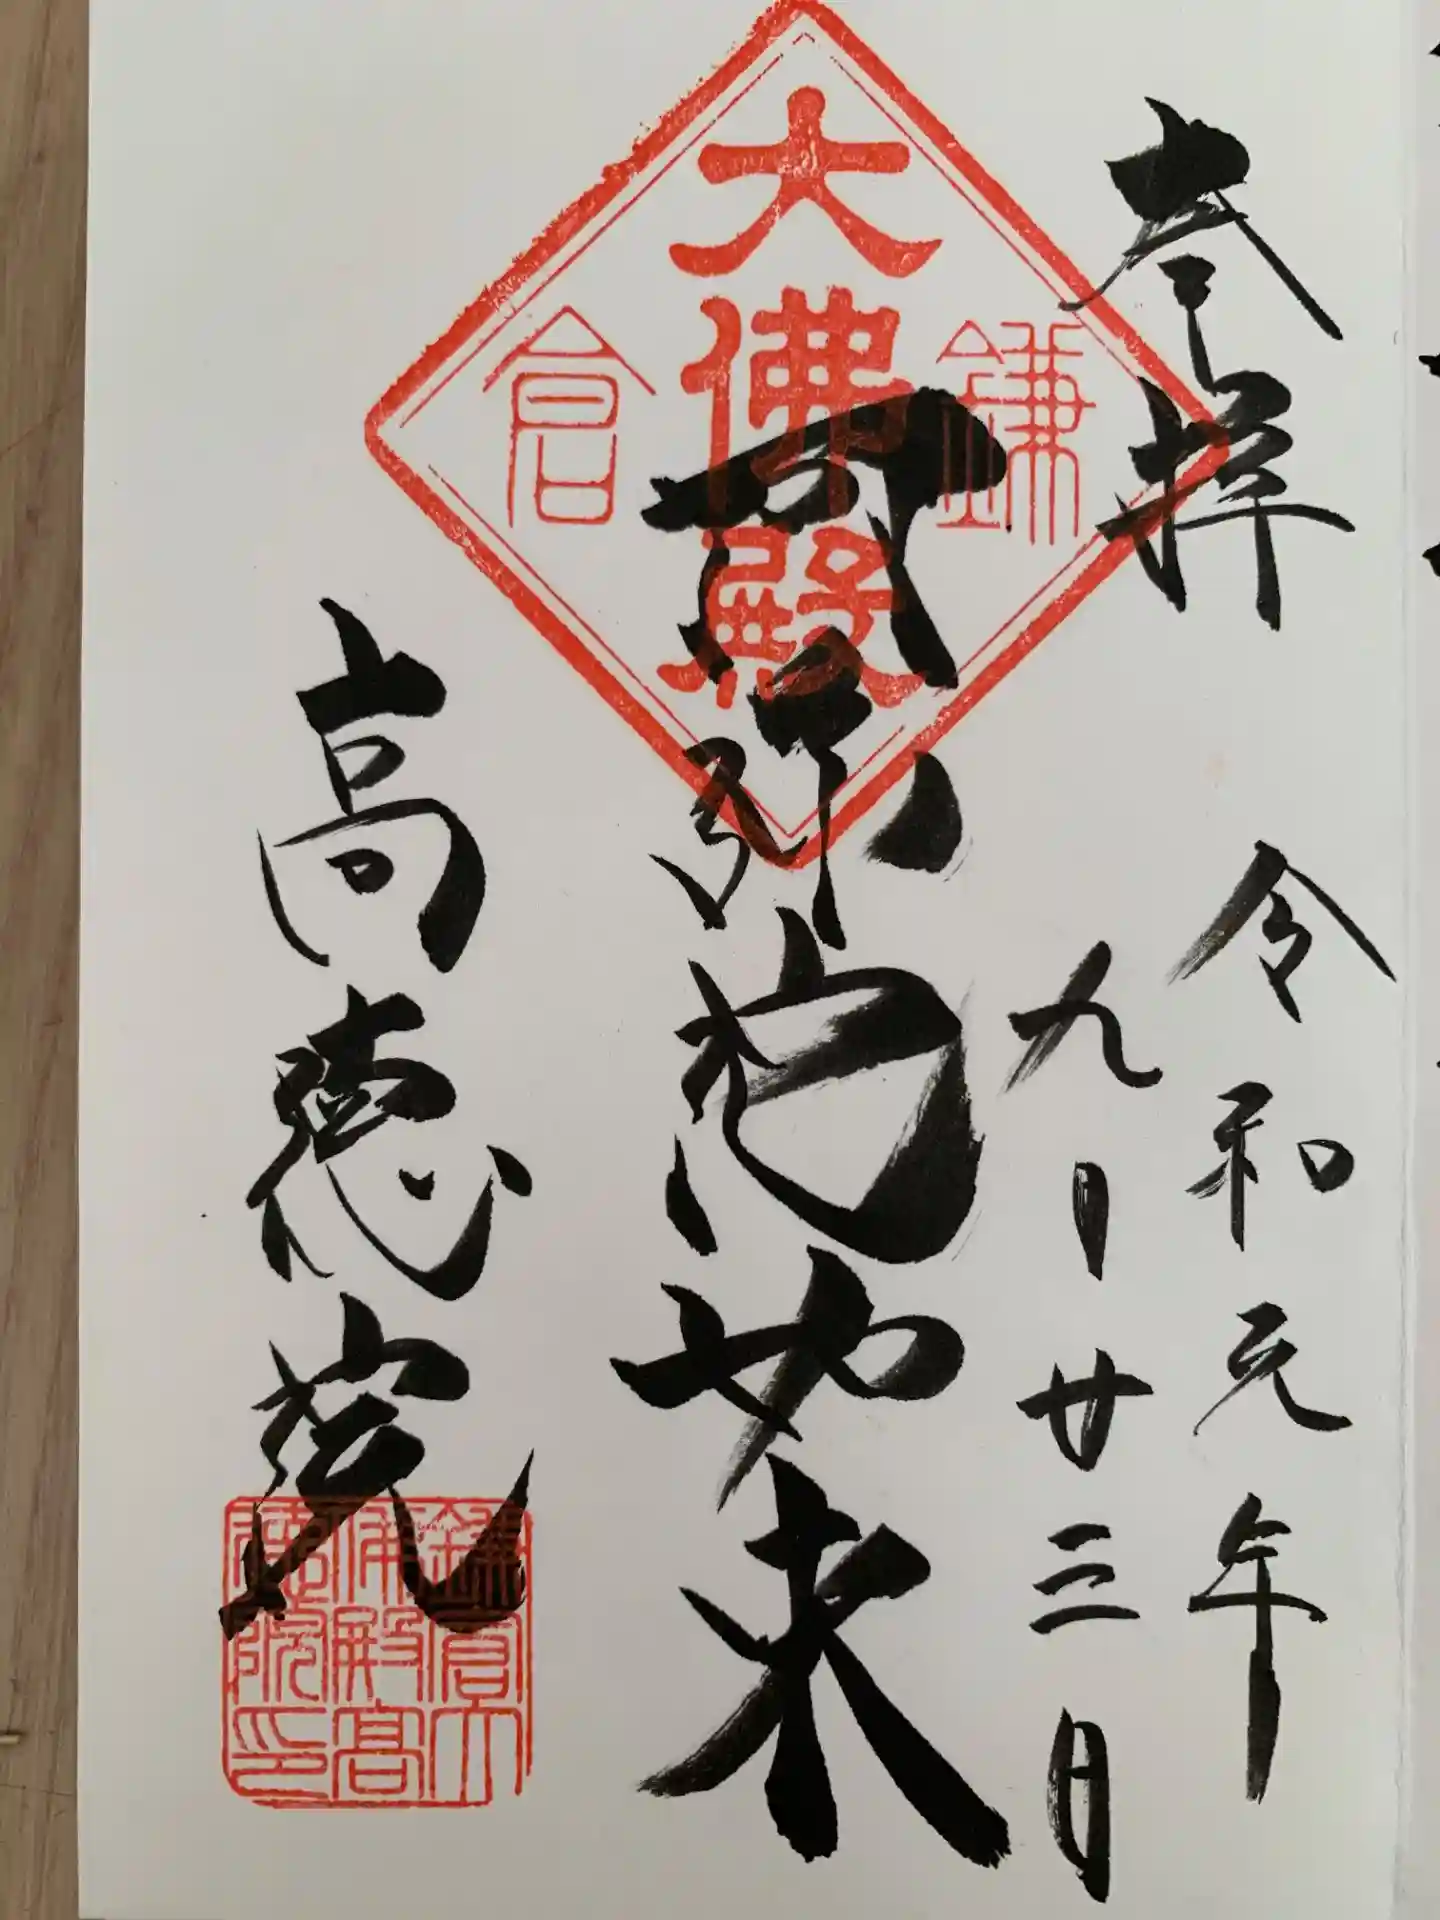 参拝
令和元年
九月廿三日
鎌倉
大佛殿
阿弥陀如来
高徳院
鎌倉大
佛殿高
徳院印